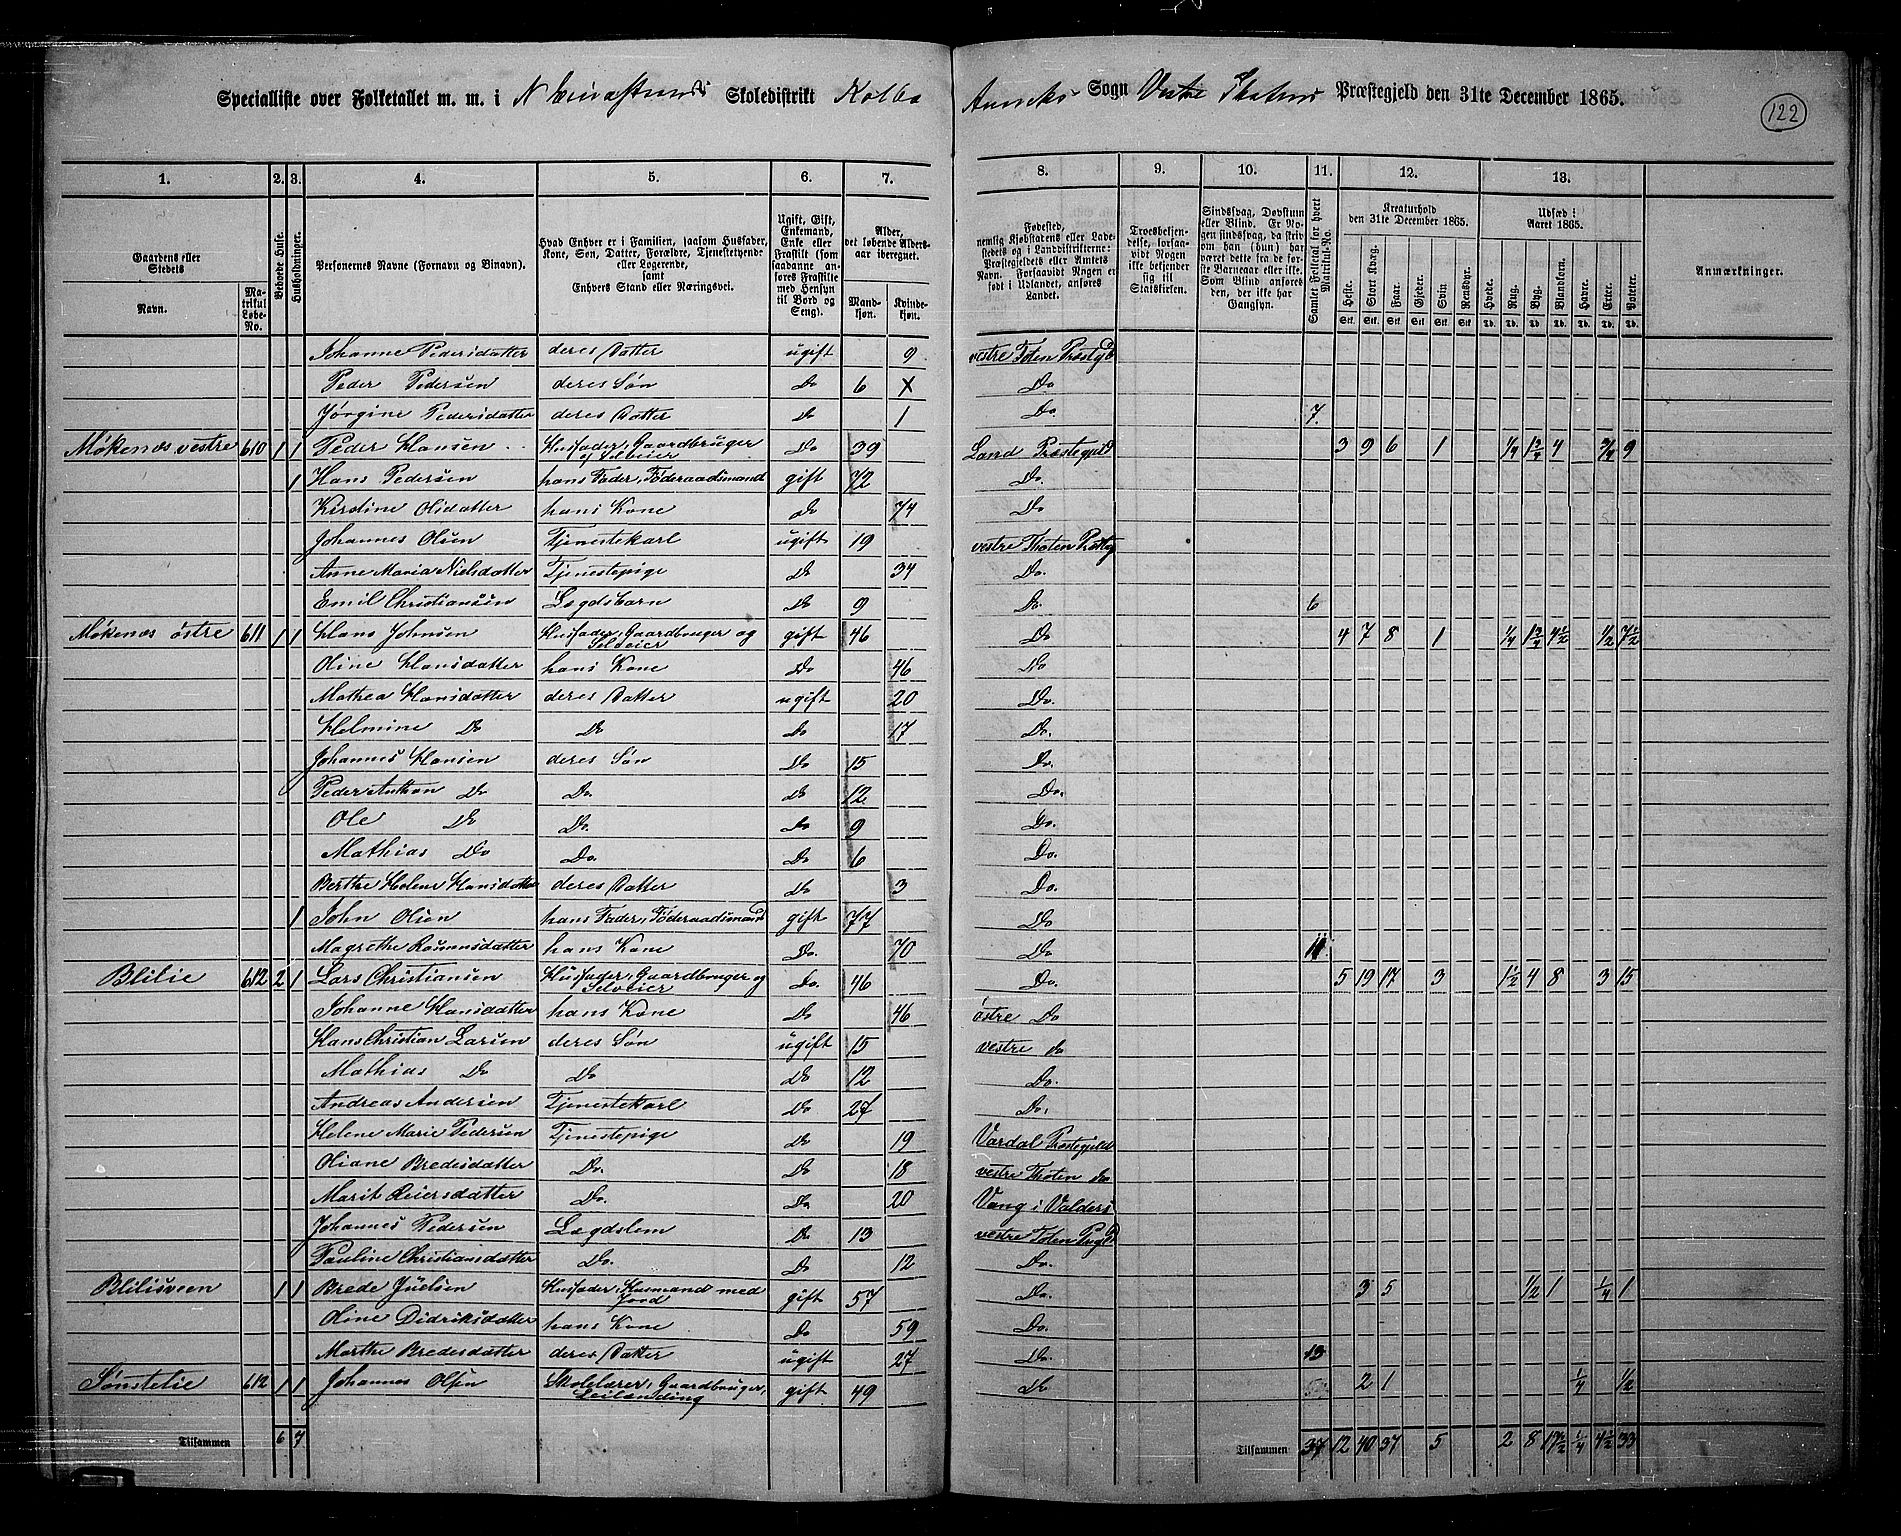 Specialliste over Folketallet m. m. i N Einastrands Skoledistrikt Kolbo Annex Sogn Vestre Thotens Præstegjeld den 31te December 1865.
122
1. 2. 3. 4. 5. 6. 7. 8. 9. 10. 11. 12. 13.
Gaardens eller Stedets
Navn. Matrikul Løbe-No.
Beboede Huse.
Husholdninger.
Personernes Navne (Fornavn og Binavn).
Hvad Enhver er i Familien, saasom Husfader, Kone, Søn, Datter, Forældre, Tjenestetyende eller Logerende, samt Enhvers Stand eller Næringsvei.
Ugift, Gift, Enkemand, Enke eller Fraskilt (som saadanne anføres Fraskilte med Hensyn til Bord og Seng).
Alder, det løbende Aldersaar iberegnet.
Mandkjøn. Kvindekjøn.
Fødested, nemlig Kjøbstadens eller Ladestedets og i Landdistrikterne: Præstegjeldets eller Amtets Navn. Forsaavidt Nogen er født i Udlandet, anføres Landet.
Troesbekjendelse, forsaavidt Nogen ikke bekjender sig til Statskirken.
Sindssvag, Døvstum eller Blind. Er Nogen sindssvag, da skrives om han (hun) har været dette fra de første Barneaar eller ikke. Som Blind anføres den, der ikke har Gangsyn.
Samlet Folketal for hvert Matrikul-No.
Kreaturhold den 31te December 1865.
Heste. Stort Kvæg. Faar. Gjeder. Svin. Rensdyr.
Udsæd i Aaret 1865.
Hvede. Rug. Byg. Blandkorn. Havre. Erter. Poteter.
Anmærkninger.
Johanne Pedersdatter deres Datter ugift 9 vestre Toten Præstgd
Peder Pedersen deres Søn Do 6 Do
Jørgine Pedersdatter deres Datter Do 1 Do. 7.
Møkenæs vestre 610 1 1 Peder Hansen Husfader, Gaardbruger og Selveier Do 39 Land Præstegjeld 3 9 6 1 1/4 1 3/4 4 3/4 9
1 Hans Pedersen hans Fader, Føderaadsmand gift 72 Do.
Kirstine Olsdatter hans Kone do 74 Do
Johannes Olsen Tjenestekarl ugift 19 vestre Thoten Prstg
Anne Maria Nielsdatter Tjenestepige Do 34 Do.
Emil Christiansen Lægdsbarn Do 9 Do. 6
Møkenæs østre 611 1 1 Hans Johnsen Husfader, Gaardbruger og Selveier gift 46 Do 4 7 8 1 1/4 1 3/4 4 1/2 1/2 7 1/2
Oline Hansdatter hans Kone Do 46 Do
Mathea Hansdatter deres Datter ugift 20 Do.
Helmine Do Do Do 17 Do.
Johannes Hansen deres Søn Do 15 Do.
Peder Anthon Do Do. Do 12 Do.
Ole Do Do. Do 9 Do.
Mathias Do Do. Do 6 Do.
Berthe Helene Hansdatter deres Datter Do 3 Do.
1 John Olsen hans Fader, Føderaadsmand gift 77 Do
Magrethe Rasmusdatter hans Kone Do. 70 Do 11
Blilie 612 2 1 Lars Christiansen Husfader, Gaardbruger og Selveier Do. 46 Do. 5 19 17 3 1 1/2 4 8 3 15
Johanne Hansdatter hans Kone Do 46 østre Do
Hans Christian Larsen deres Søn ugift 15 vestre do
Mathias Do Do Do 12 Do.
Andreas Andersen Tjenestekarl Do 27 Do.
Helene Marie Pedersen Tjenestepige Do 19 Vardal Præstegjeld
Oliane Bredesdatter Do. Do 18 vestre Thoten do
Marit Do. Do 20 Vang i Valders
Johannes Pedersen Lægdslem Do 13 vestre Toten Prgd
Pauline Christiansdatter Do. Do 12 Do.
Bliliesveen 1 1 Brede Juelsen Husfader, Husmand med Jord gift 57 Do. 3 5 1/2 1 1/4 1
Oline Didriksdatter hans Kone Do 59 Do.
Marthe Bredesdatter deres Datter ugift 27 Do. 13
Sønstelie 612 1 1 Johannes Olsen Skolelærer, Gaardbruger, Leilænding gift 49 Do 2 1 1/4 1/2
Tilsammen 6 7 Tilsammen 37 12 40 37 5 2 8 17 1/2 1/4 4 1/2 33